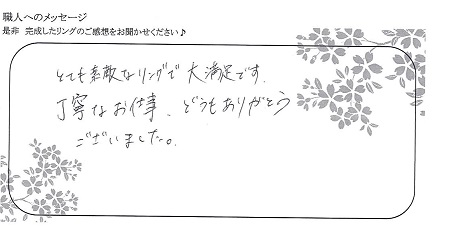 職人へのメッセージ
是非 完成したリングのご感想をお聞かせください♪
とても素敵なリングで大満足です.
丁寧なお仕事、どうもありがとう
ございました。